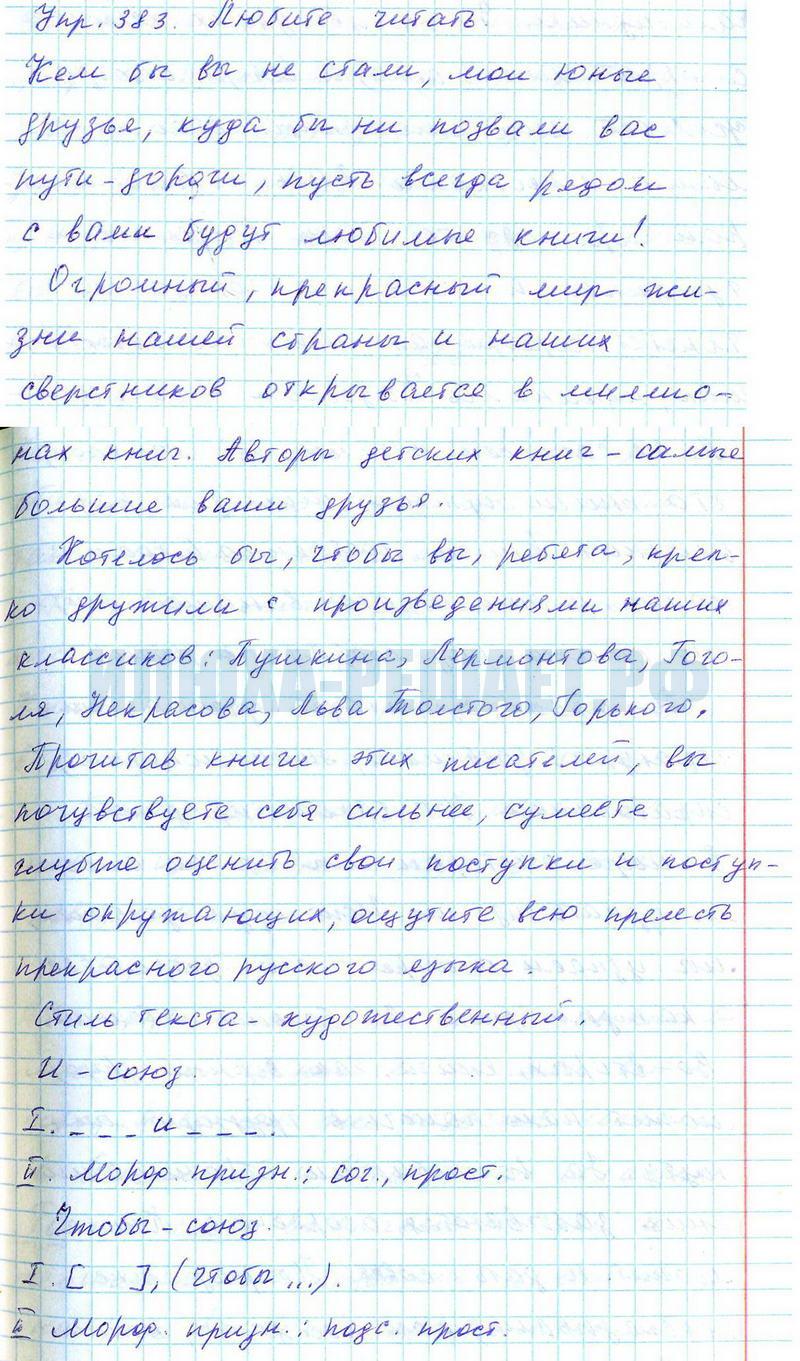 Упр. 383. Любите читать.
Кем бы вы не стали, мои юные
друзья, куда бы ни позвали вас
пути-дороги, пусть всегда рядом
с вами будут любимые книги!
Огромный, прекрасный мир жи-
зни нашей страны и наших
сверстников открывается в миллио-
нах книг. Авторы детских книг - самые
большие ваши друзья.
Хотелось бы, чтобы вы, ребята, креп-
ко дружили с произведениями наших
классиков: Пушкина, Лермонтова, Гого-
ИЛЮХА-РЕШАЕТ.РФ
ля, Некрасова, Льва Толстого, Горького.
Прочитав книги этих писателей, вы
почувствуете себя сильнее, сумеете
глубже оценить свои поступки и поступ-
ки окружающих, ощутите всю прелесть
прекрасного русского языка.
Стиль текста - художественный.
И - союз.
I. _ _ _ и _ _ _.
II. Морф. призн.: соч., прост.
Чтобы - союз.
I. [ ], (чтобы ...).
II Морф. призн.: подч. прост.